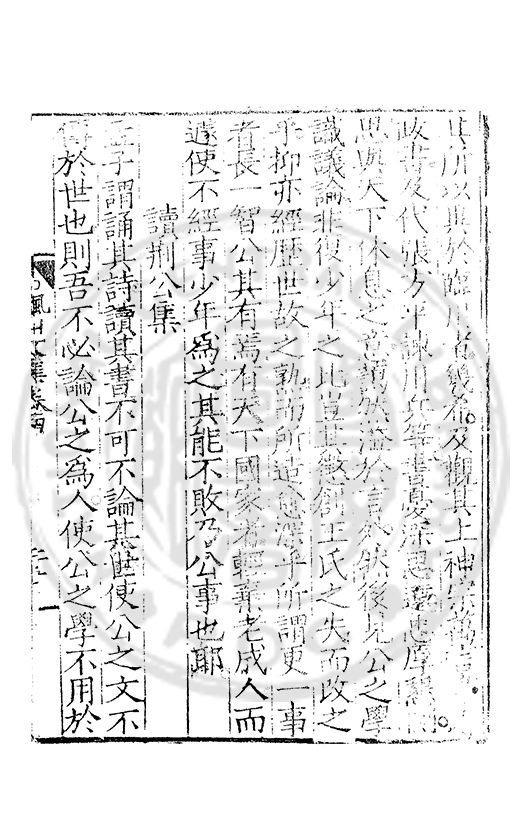 其所以異於臨川者幾希及觀其上神宗萬言
政書及代張方平諫用兵等書憂深思遠忠厚
思與天下休息之意藹然溢於言外然後見公之學
識議論非復少年之比豈其懲創王氏之失而改之
乎抑亦經歷世故之熟而所造愈深乎所謂更一事
者長一智公其有焉有天下國家者輕棄老成人而
遽使不經事少年為之其能不敗乃公事也耶
讀荆公集
孟子謂誦其詩讀其書不可不論其世使公之文不
傳於世也則吾不必論公之為人使公之學不用於
楓山文集卷